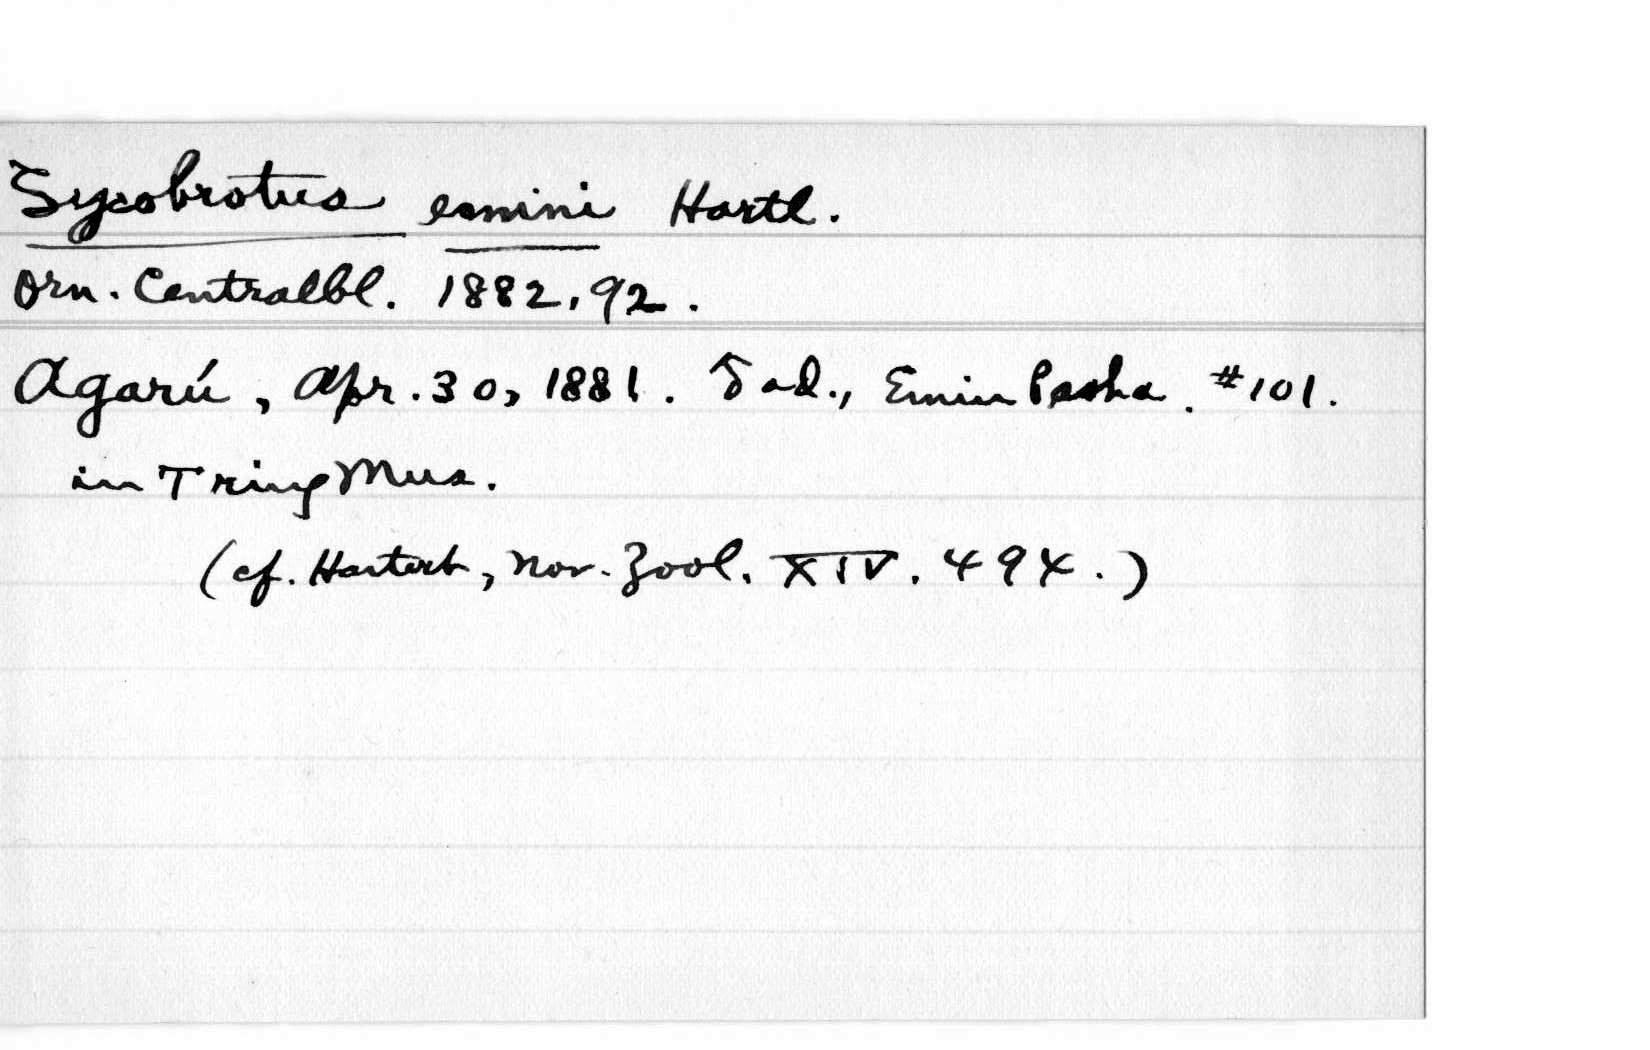 Sycobrotus emini Hartl.
Orn. Centralbl. 1882, 92.
Agarú, Apr. 30, 1881. ♂ ad., Emin Pasha. #101.
in Tring Mus.
(cf. Hartert, Nov. Zool. XIV. 494.)